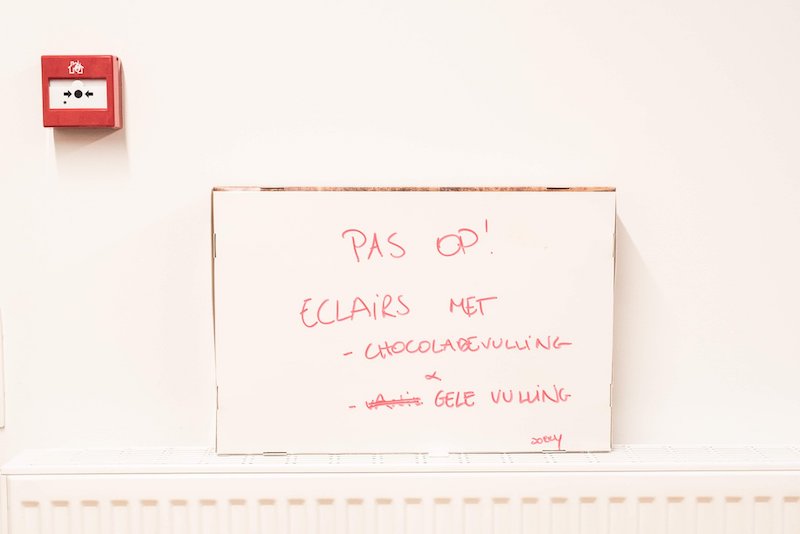 PAS OP!
ECLAIRS MET
- CHOCOLADEVULLING
&
- GELE VULLING